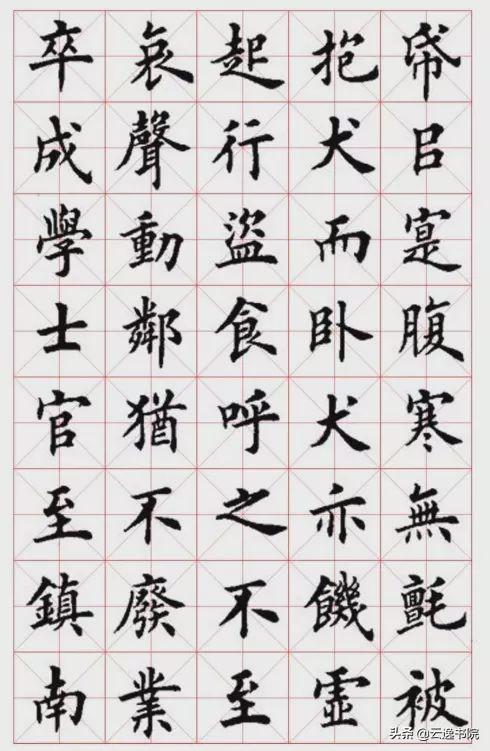 帋㠯寔腹寒無氈被
抱犬而卧犬亦饑虛
起行盜食呼之不至
哀聲動鄰猶不廢業
卒成學士官至鎮南
头条 @云逸书院